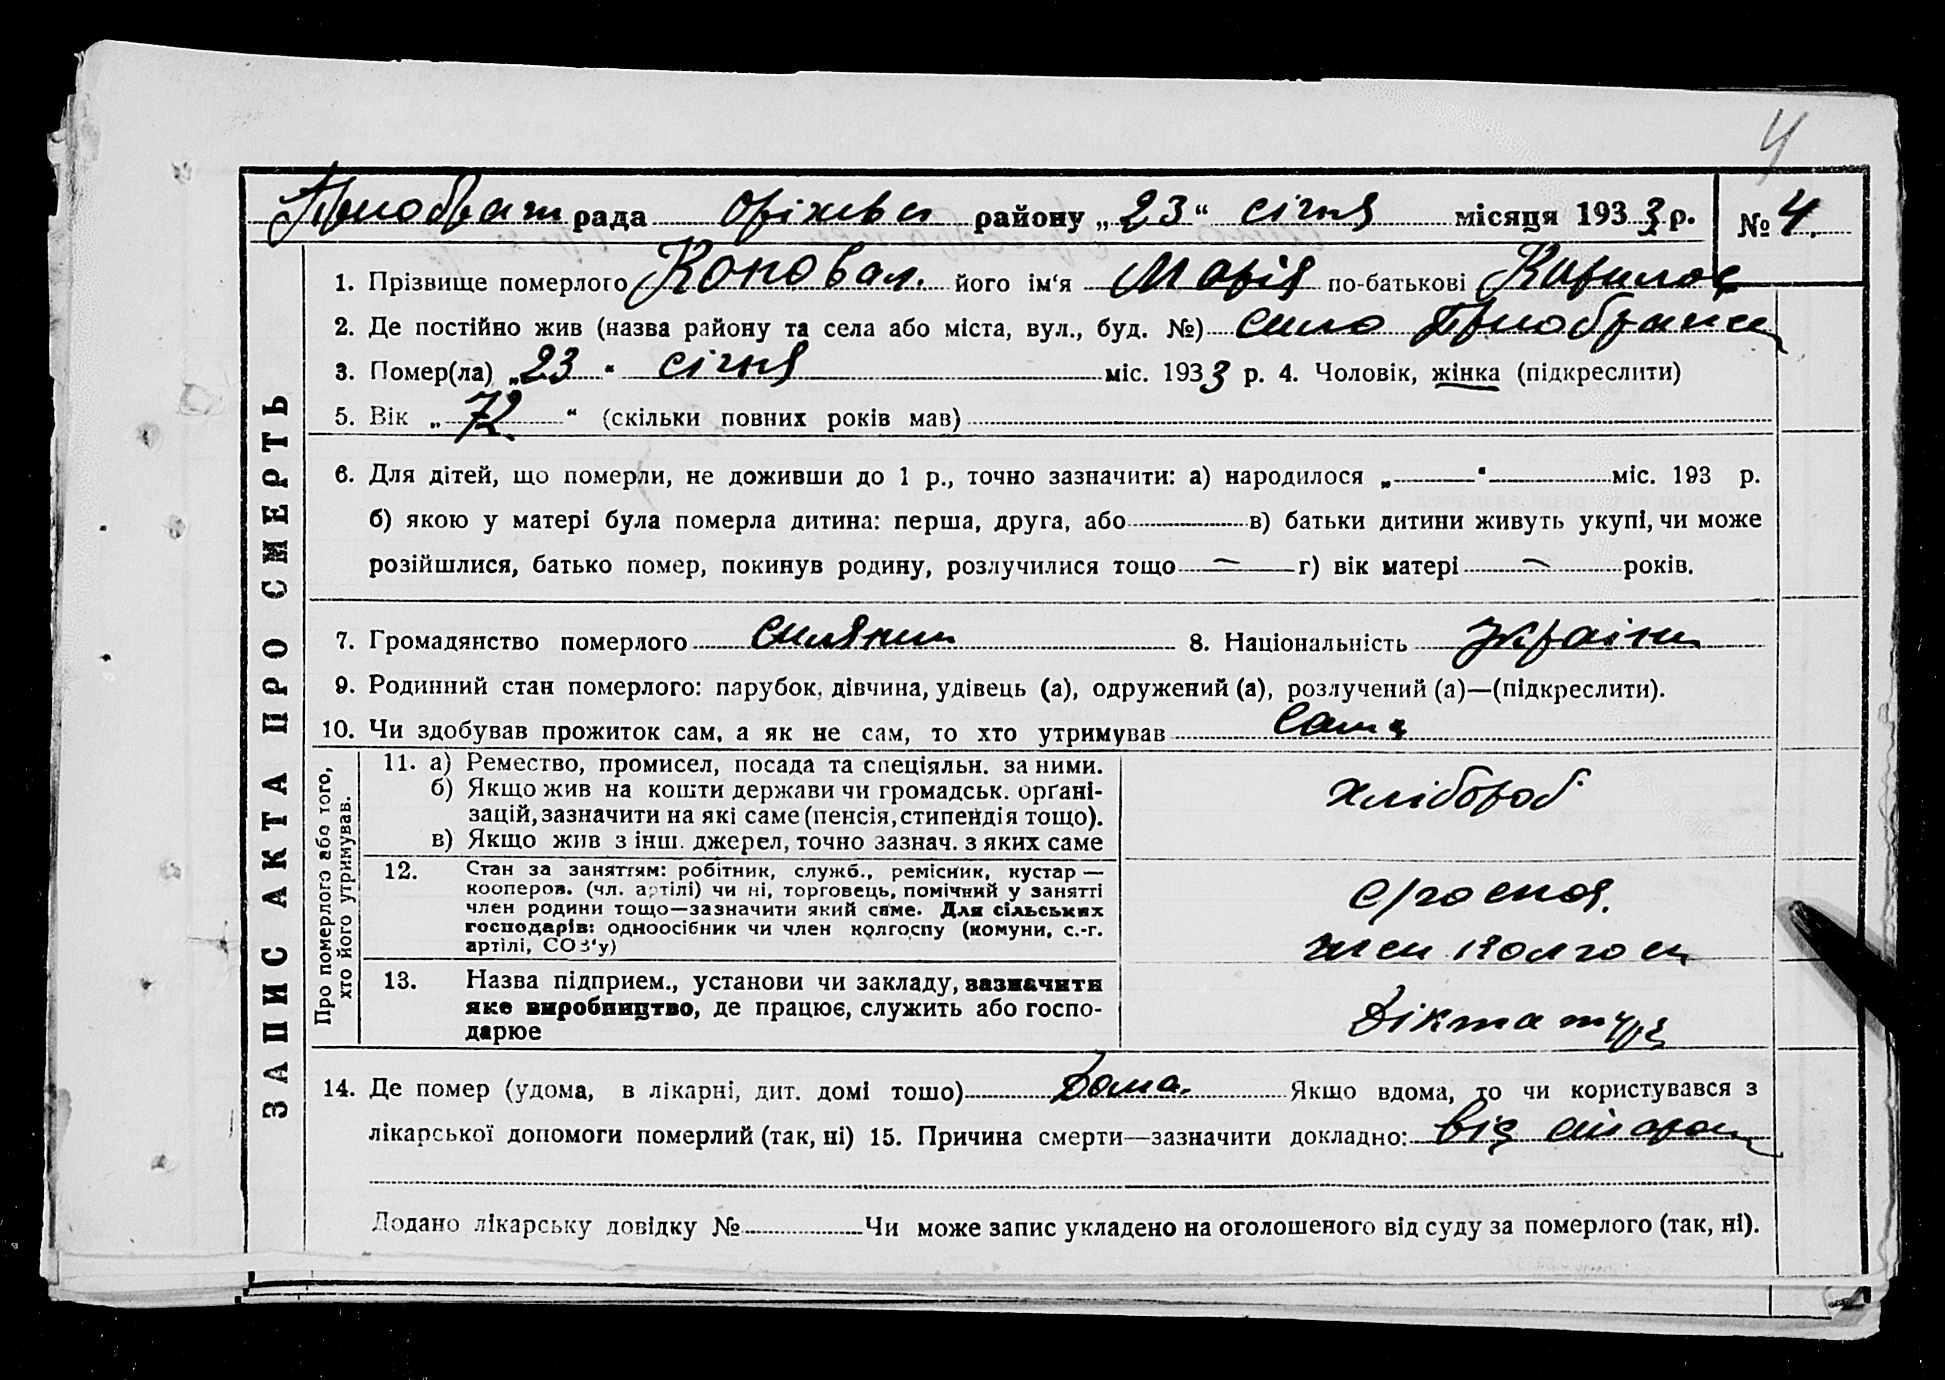 4
Приобрат рада Оріхівсь району „23“ січня місяця 1933 р. № 4.
1. Прізвище померлого Коновал. його ім‘я Марія по-батькові
2. Де постійно жив (назва району та села або міста, вул., буд. №) село
3. Помер(ла) „23“ січня міс. 1933 р. 4. Чоловік, жінка (підкреслити)
5. Вік „72“ (скільки повних років мав)
6. Для дітей, що померли, не доживши до 1 р., точно зазначити: а) народилося „—“ — міс. 193 р.
б) якою у матері була померла дитина: перша, друга, або в) батьки дитини живуть укупі, чи може
розійшлися, батько помер, покинув родину, розлучилися тощо — г) вік матері — років.
7. Громадянство померлого 8. Національність україн
9. Родинний стан померлого: парубок, дівчина, удівець (а), одружений (а), розлучений (а)—(підкреслити).
10. Чи здобував прожиток сам, а як не сам, то хто утримував сама
ЗАПИС АКТА ПРО СМЕРТЬ
Про померлого або того,
хто його утримував.
11. а) Ремество, промисел, посада та спеціяльн. за ними.
б) Якщо жив на кошти держави чи громадськ. орґані-
зацій, зазначити на які саме (пенсія, стипендія тощо).
в) Якщо жив з інш. джерел, точно зазнач. з яких саме
хлібороб
12. Стан за заняттям: робітник, служб., ремісник, кустар —
кооперов. (чл. артілі) чи ні, торговець, помічний у занятті
член родини тощо—зазначити який саме. Для сільських
господарів: одноосібник чи член колгоспу (комуни, с.-г.
артілі, СОЗ‘у)
член колгосп
13. Назва підприєм., установи чи закладу, зазначити
яке виробництво, де працює, служить або госпо-
дарює
Діктатура
14. Де помер (удома, в лікарні, дит. домі тошо) Дома. Якщо вдома, то чи користувався з
лікарської допомоги померлий (так, ні) 15. Причина смерти—зазначити докладно: від старост
Додано лікарську довідку № Чи може запис укладено на оголошеного від суду за померлого (так, ні).